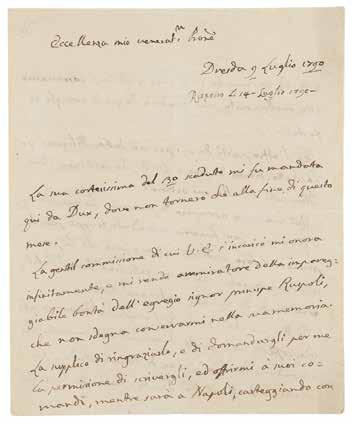 Eccellenza mio venerat.mo Prone
Dresda 9 Luglio 1790
Li 14 Luglio 1790
La sua cortesissima del 30 scaduto mi fu mandata
qui da Dux, dove non tornerò che alla fine di questo
mese.
La gentil commissione di cui V. E. s'incaricò mi onora
infinitamente, e mi rende ammiratore della impareg-
giabile bontà dell'egregio signor principe Rupoli,
che non sdegna conservarmi nella sua memoria.
La supplico di ringraziarlo, e di domandargli per me
la permissione di scrivergli, ed offrirmi à suoi co-
mandi, mentre sarà a Napoli, carteggiando con